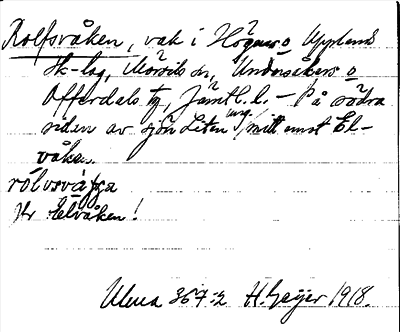 Rolfsvåken, vak i Högens o Upplands
sk-lag, Mörsils sn, Undersåkers o
Offerdals tg, Jämtl. l. – På södra
siden av sjön Liten ung. mitt emot El-
våken.
rólvsvàƙa
Hr Elvåken!
Ulma 367:2 H. Geijer 1918.